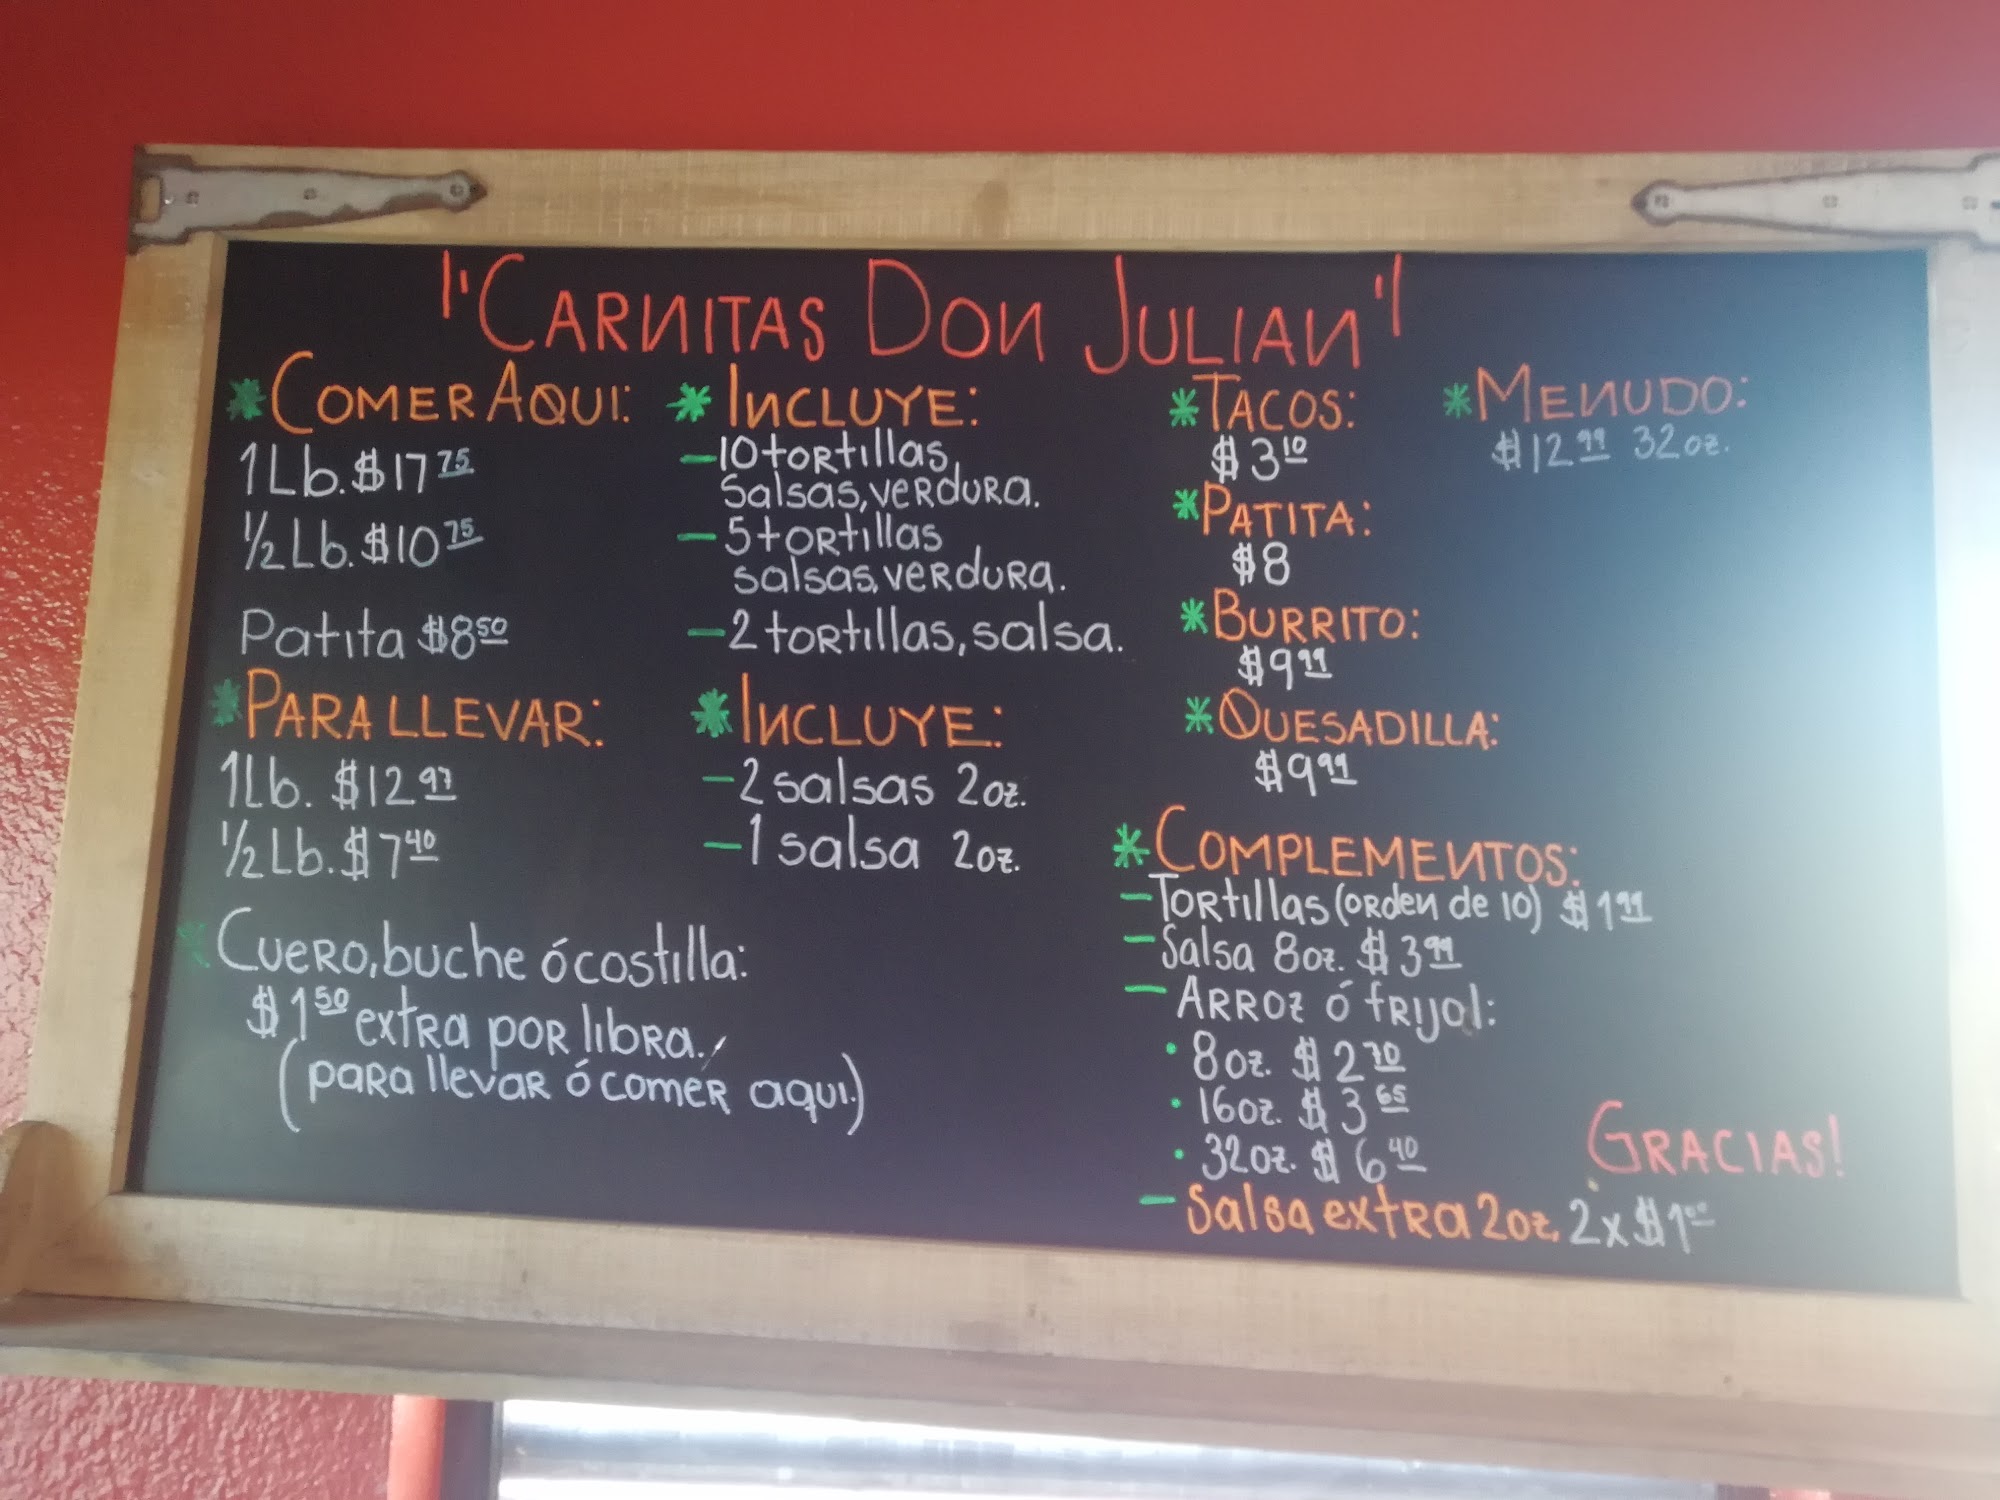 "CARNITAS DON JULIAN"
*COMER AQUI:
1Lb. $17 75
1/2 Lb. $10 75
Patita $8 50
*INCLUYE:
-10 tortillas,
salsas, verdura.
-5 tortillas
salsas, verdura.
-2 tortillas, salsa.
*PARA LLEVAR:
1Lb. $12 97
1/2 Lb. $7 40
*INCLUYE:
-2 salsas 2oz.
-1 salsa 2oz.
*Cuero, buche ó costilla:
$1 50 extra por libra.
(para llevar ó comer aqui.)
*TACOS:
$3 10
*PATITA:
$8
*BURRITO:
$9 99
*QUESADILLA:
$9 99
*MENUDO:
$12 99 32oz.
*COMPLEMENTOS:
-Tortillas (orden de 10) $1 99
-Salsa 8oz. $3 99
-ARROZ ó frijol:
• 8oz. $2 70
• 16oz. $3 65
• 32oz. $6 40
-Salsa extra 2oz. 2x$1 00
GRACIAS!